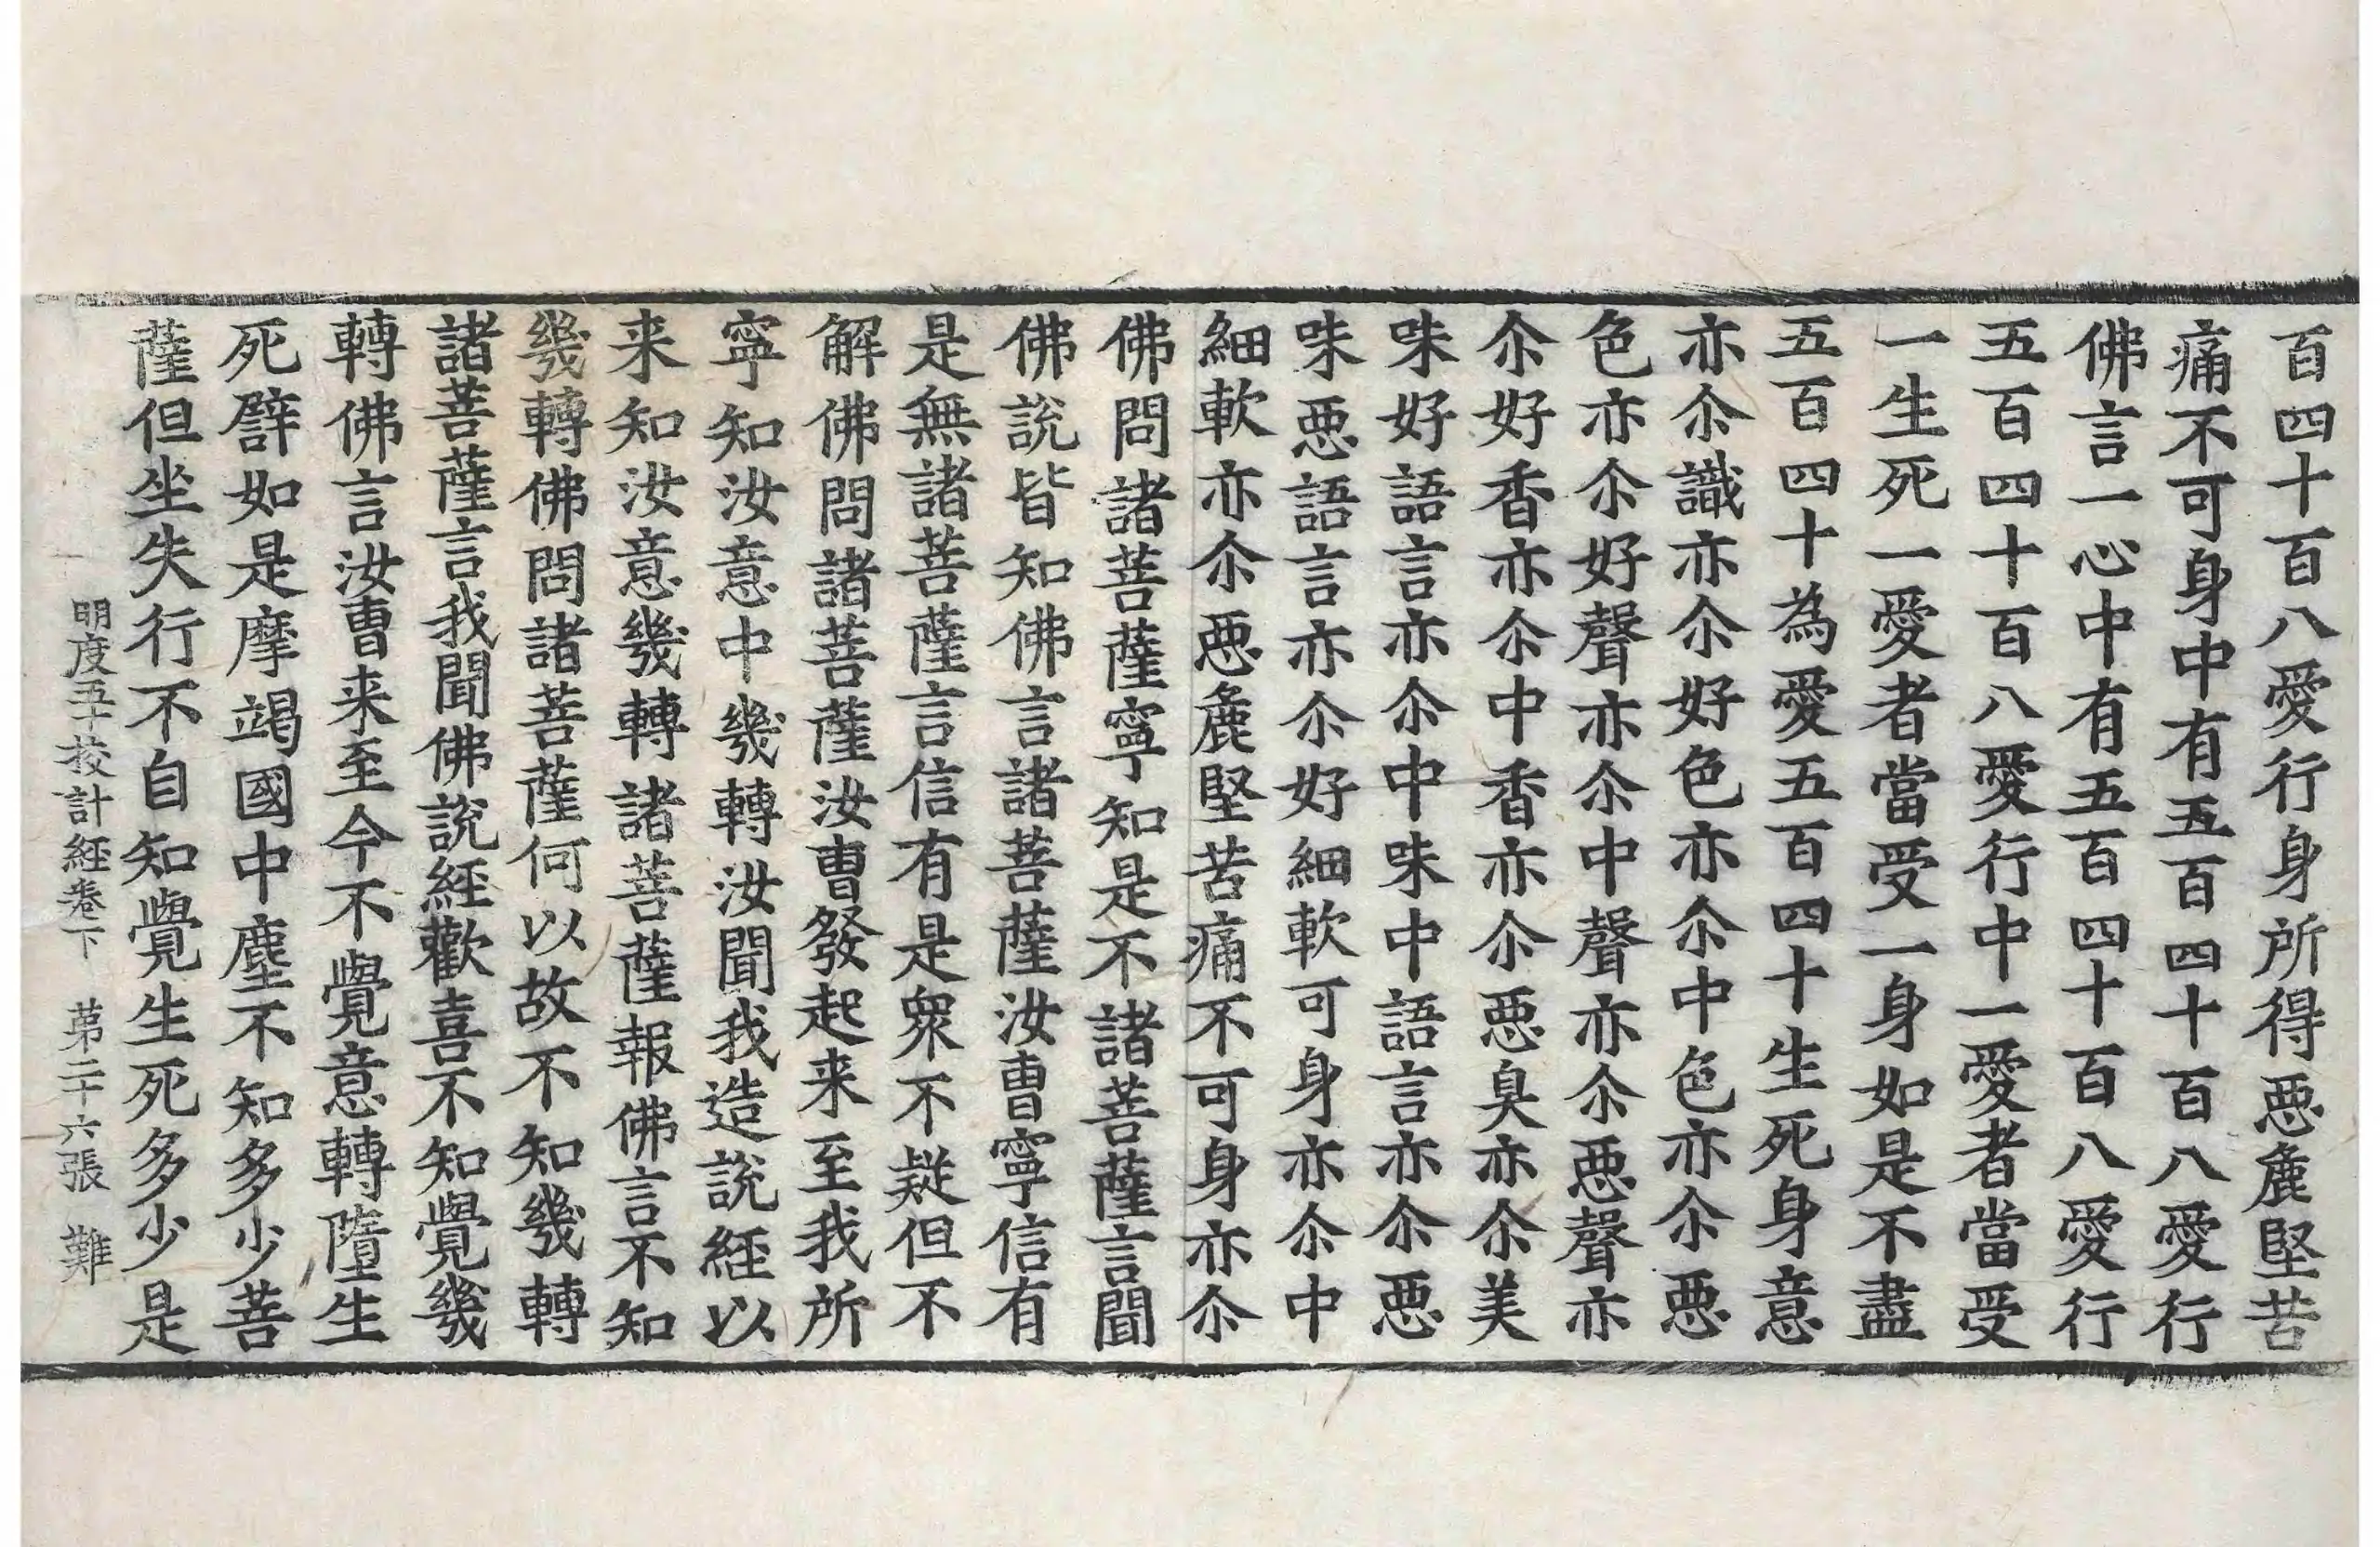 百四十百八愛行身所得惡麁堅苦
痛不可身中有五百四十百八愛行
佛言一心中有五百四十百八愛行
五百四十百八愛行中一愛者當受
一生死一愛者當受一身如是不盡
五百四十為愛五百四十生死身意
亦尒識亦尒好色亦尒中色亦尒惡
色亦尒好聲亦尒中聲亦尒惡聲亦
尒好香亦尒中香亦尒惡臭亦尒美
味好語言亦尒中味中語言亦尒惡
味惡語言亦尒好細軟可身亦尒中
細軟亦尒惡麁堅苦痛不可身亦尒
佛問諸菩薩寧知是不諸菩薩言聞
佛說皆知佛言諸菩薩汝曹寧信有
是無諸菩薩言信有是眾不疑但不
解佛問諸菩薩汝曹發起来至我所
寧知汝意中幾轉汝聞我造說經以
来知汝意幾轉諸菩薩報佛言不知
幾轉佛問諸菩薩何以故不知幾轉
諸菩薩言我聞佛說經歡喜不知覺幾
轉佛言汝曹来至今不覺意轉墮生
死譬如是摩竭國中塵不知多少菩
薩但坐失行不自知覺生死多少是
明度五十挍計經卷下 第二十六張 難